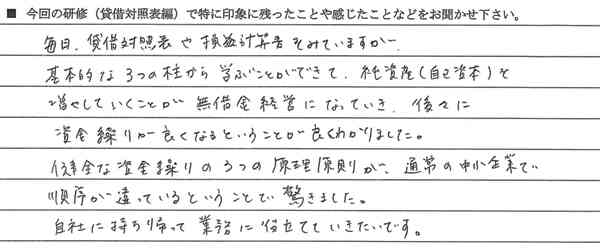 ■ 今回の研修（貸借対照表編）で特に印象に残ったことや感じたことなどをお聞かせ下さい。
毎日、貸借対照表や損益計算書をみていますが、
基本的な3つの柱から学ぶことができて、純資産(自己資本)を
増やしていくことが無借金経営になっていき、後々に
資金繰りが良くなるということが良くわかりました。
健全な資金繰りの3つの原理原則が、通常の中小企業で
順序が違っているということで驚きました。
自社に持ち帰って業務に役立てていきたいです。